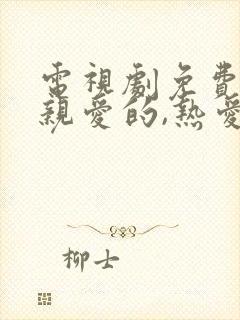 電視劇免費
親愛的,熱愛
柳士